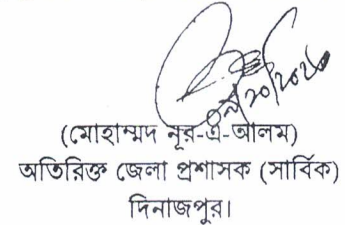 (মোহাম্মদ নূর-এ-আলম)
অতিরিক্ত জেলা প্রশাসক (সার্বিক)
দিনাজপুর।